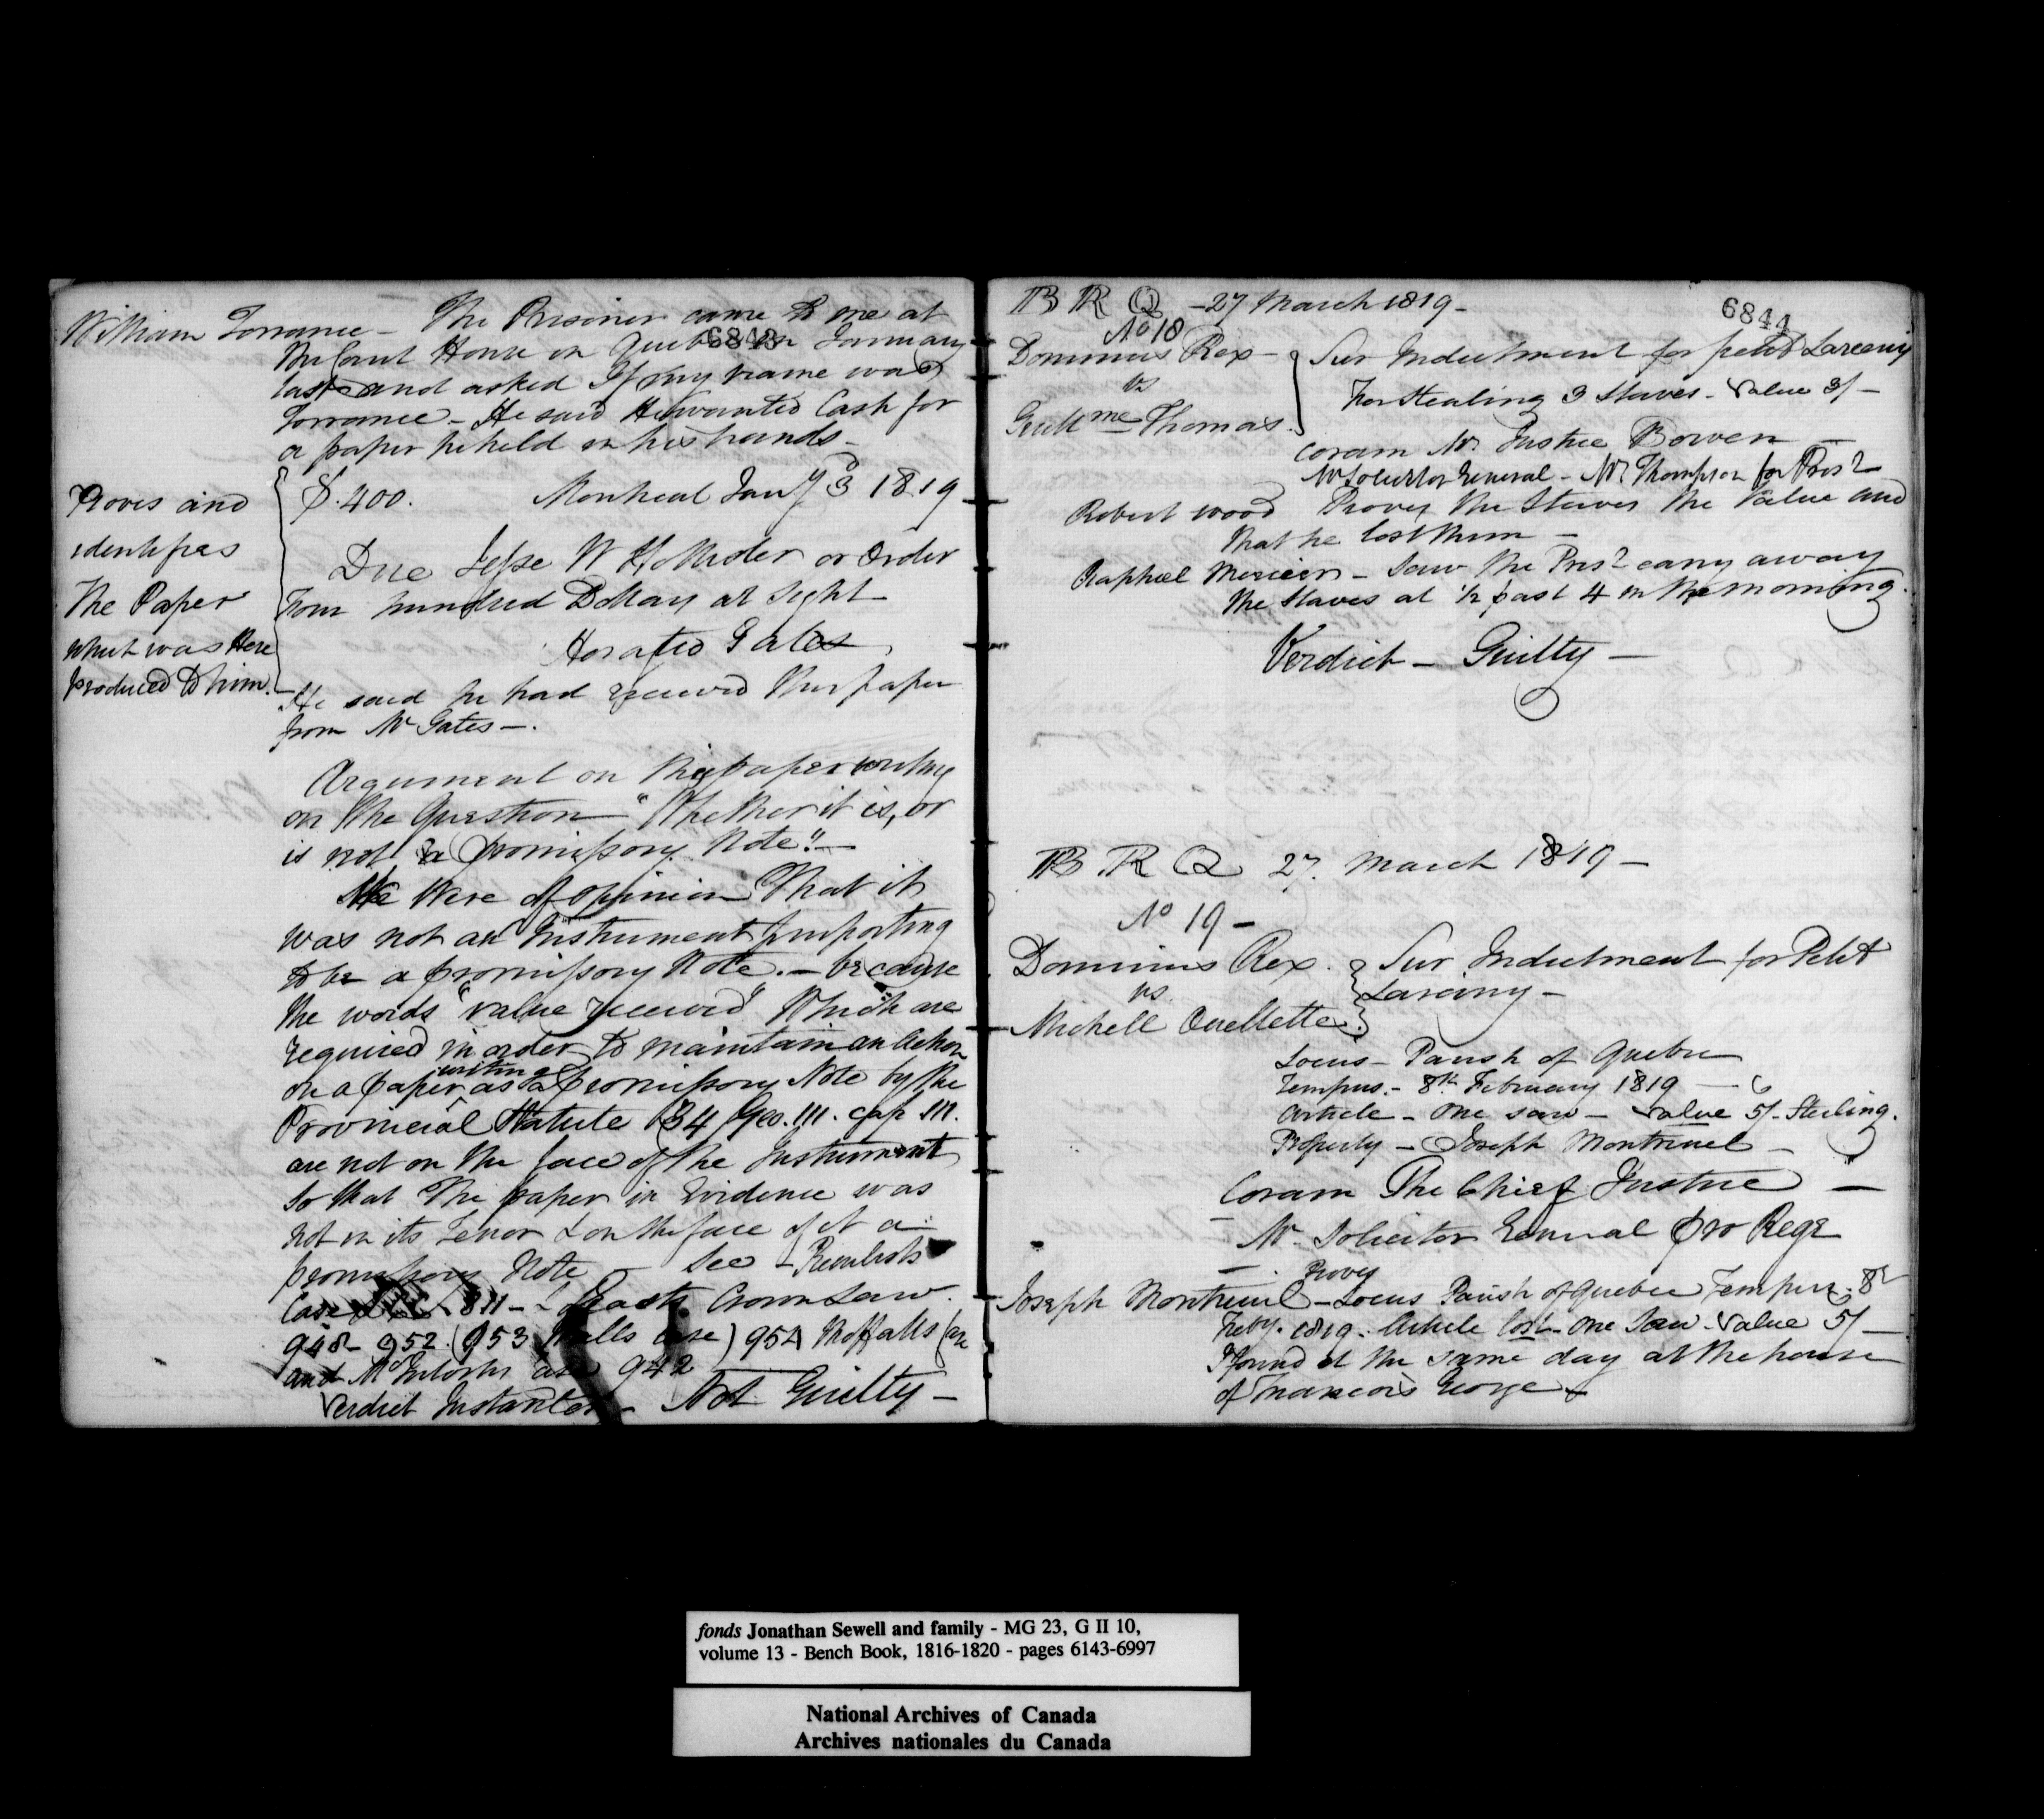 William Torrance - The Prisoner came to me at
the Court House in Quebec in January
6843
last and asked If my name was
Torrance - He said He wanted Cash for
a paper he held in his hands -
Proves and
identifies
The Paper
which was Here
produced to him.
$.400. Montreal Jany 3d 1819
Due Jesse W Hollister or Order
Four hundred Dollars at Sight -
Horatio Gates
He said he had received this paper
from Mr Gates -.
Argument on this paper writing
on the Question "Whether it is, or
is not a promissory Note." -
We Were of opinion That it
was not an Instrument purporting
to be a promissory Note. - because
the words "value received" Which are
required in order to maintain an action
on a paper writing as a promissory Note by the
Provincial Statute 34 Geo. III. cap III.
are not on the face of the Instrument
So that The paper in Evidence was
not in its Tenor & on the face of it a
promissory Note - See -
Case 811 - 2 East's Crown Law.
948 - 952. (953 Walls case) 954 Moffatts Case
and McIntoshs case 942
Verdict Instanter - Not Guilty -
6844
B R Q - 27 March 1819 -
No 18
Dominus Rex -
vs
Guillme Thomas.
Sur Indictment for petit Larceny
For Stealing 3 Staves - Value 3/ -
Coram Mr. Justice Bowen -
Mr Solicitor General - Mr Thompson for Prisr
Robert Wood Proves the Staves the Value and
that he lost them -
Raphael Mercier - Saw the Prisr carry away
the Staves at 1/2 past 4 in the morning.
Verdict - Guilty -
B R Q 27. March 1819 -
No 19 -
Dominus Rex.
vs
Michell Ouellette.
Sur Indictment for Petit
Larceny -
Locus - Parish of Quebec
Tempus. - 8th February 1819 -
Article - One saw - Value 5/- Sterling.
Property - Joseph Montreuil -
Coram The Chief Justice -
Mr. Solicitor General pro Rege
Joseph Montreuil - Proves Locus Parish of Quebec Tempus. 8th
Feby. 1819. Article lost - One Saw - Value 5/ -
I found it the same day at the house
of Francois George -
fonds Jonathan Sewell and family - MG 23, G II 10,
volume 13 - Bench Book, 1816-1820 - pages 6143-6997
National Archives of Canada
Archives nationales du Canada